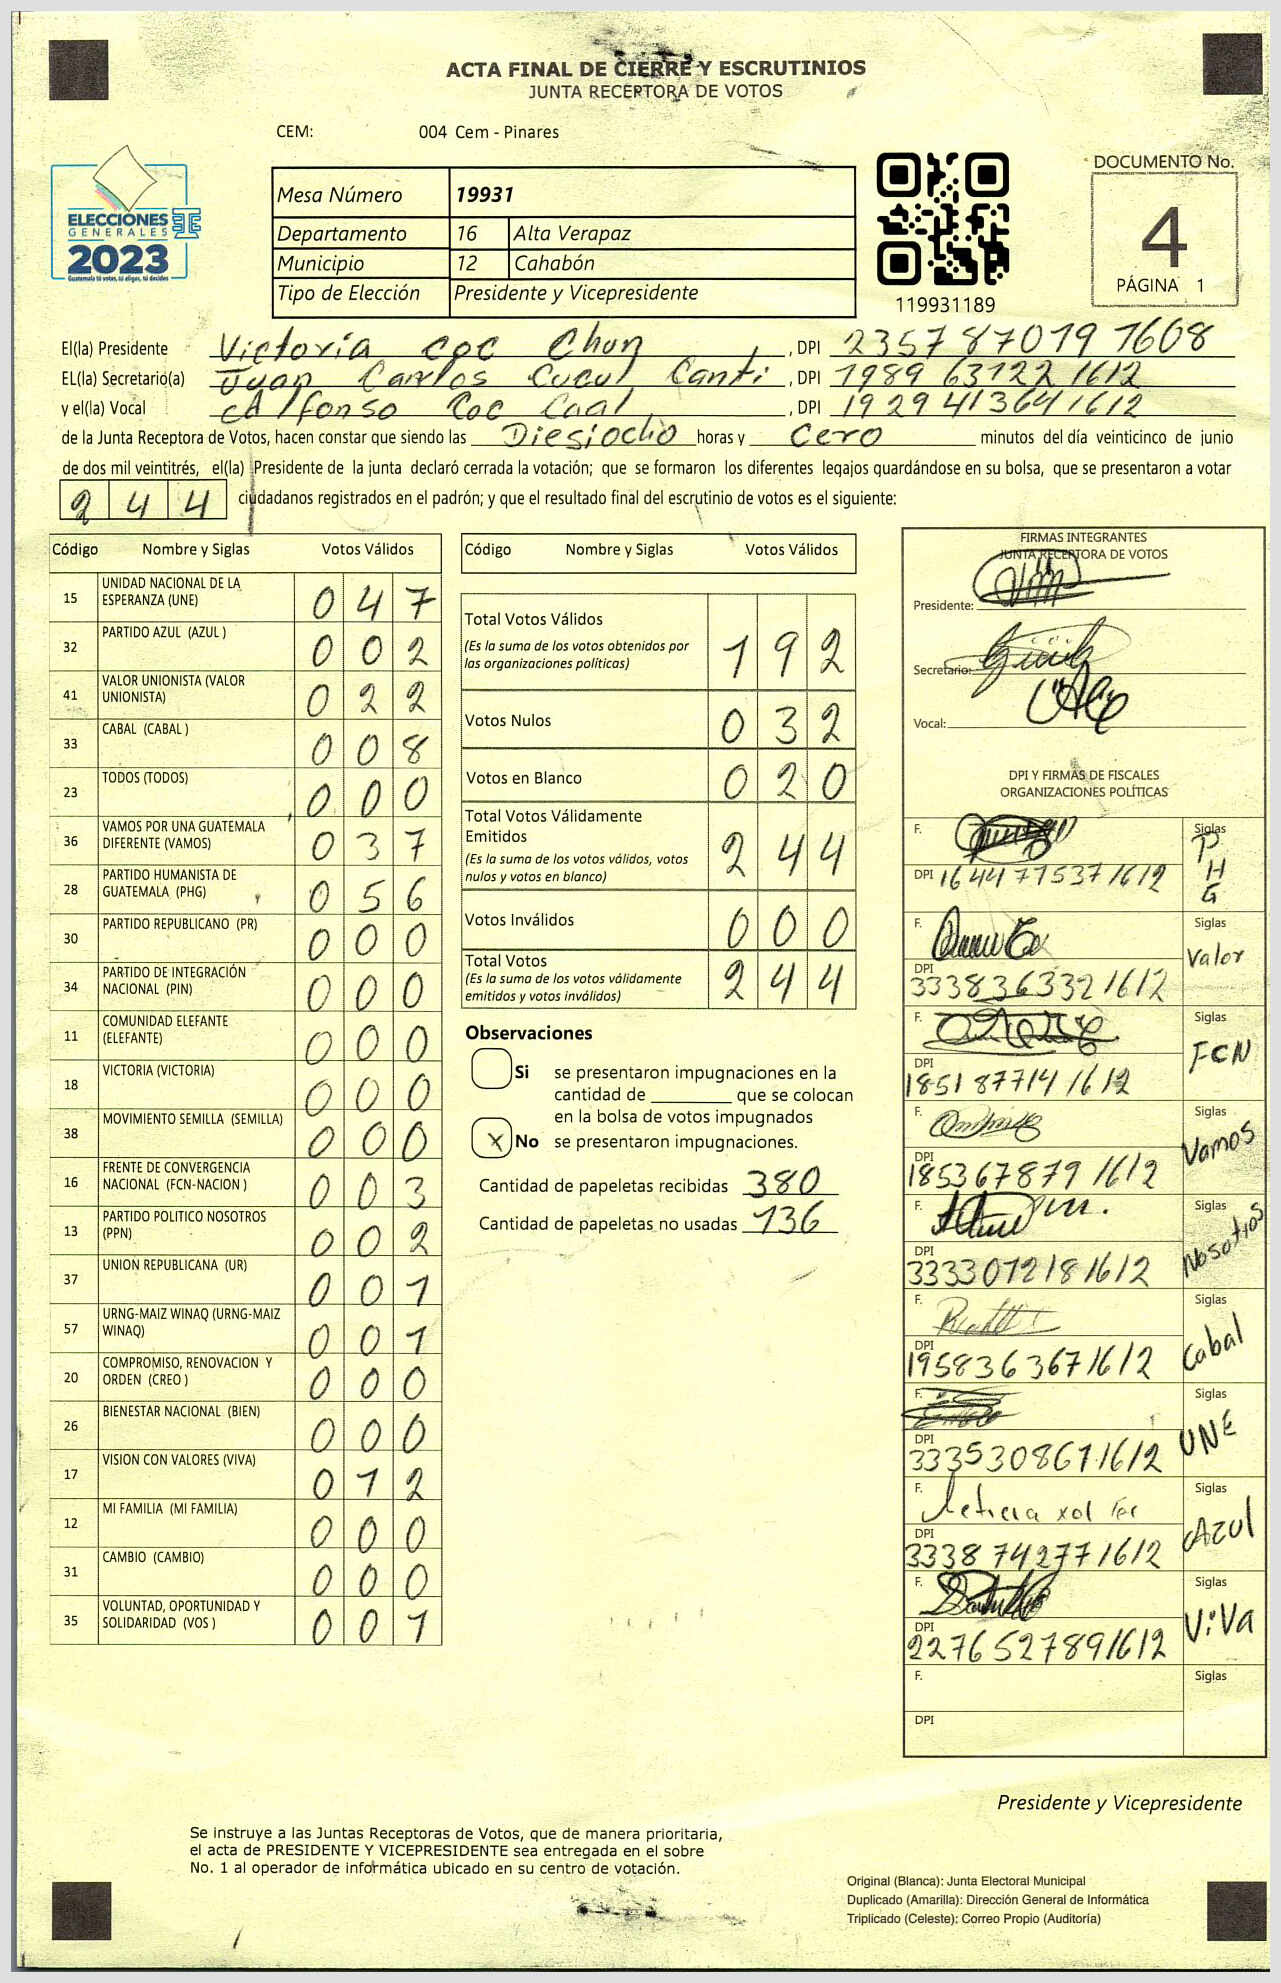 ACTA FINAL DE CIERRE Y ESCRUTINIOS
JUNTA RECEPTORA DE VOTOS
CEM: 004 Cem - Pinares
ELECCIONES
GENERALES
2023
Guatemala tú votas, tú eliges, tú decides
Mesa Número 19931
Departamento 16 Alta Verapaz
Municipio 12 Cahabón
Tipo de Elección Presidente y Vicepresidente
119931189
DOCUMENTO No.
4
PÁGINA 1
El(la) Presidente Victoria Coc Chun, DPI 2357 87019 1608
EL(la) Secretario(a) Juan Carlos Cucul Canti, DPI 1989 63122 1612
y el(la) Vocal Alfonso Coc Caal, DPI 1929 41364 1612
de la Junta Receptora de Votos, hacen constar que siendo las Diesiocho horas y Cero minutos del día veinticinco de junio
de dos mil veintitrés, el(la) Presidente de la junta declaró cerrada la votación; que se formaron los diferentes legajos guardándose en su bolsa, que se presentaron a votar
2 4 4 ciudadanos registrados en el padrón; y que el resultado final del escrutinio de votos es el siguiente:
Código Nombre y Siglas Votos Válidos
15 UNIDAD NACIONAL DE LA ESPERANZA (UNE) 0 4 7
32 PARTIDO AZUL (AZUL ) 0 0 2
41 VALOR UNIONISTA (VALOR UNIONISTA) 0 2 2
33 CABAL (CABAL ) 0 0 8
23 TODOS (TODOS) 0 0 0
36 VAMOS POR UNA GUATEMALA DIFERENTE (VAMOS) 0 3 7
28 PARTIDO HUMANISTA DE GUATEMALA (PHG) 0 5 6
30 PARTIDO REPUBLICANO (PR) 0 0 0
34 PARTIDO DE INTEGRACIÓN NACIONAL (PIN) 0 0 0
11 COMUNIDAD ELEFANTE (ELEFANTE) 0 0 0
18 VICTORIA (VICTORIA) 0 0 0
38 MOVIMIENTO SEMILLA (SEMILLA) 0 0 0
16 FRENTE DE CONVERGENCIA NACIONAL (FCN-NACION ) 0 0 3
13 PARTIDO POLITICO NOSOTROS (PPN) 0 0 2
37 UNION REPUBLICANA (UR) 0 0 1
57 URNG-MAIZ WINAQ (URNG-MAIZ WINAQ) 0 0 1
20 COMPROMISO, RENOVACION Y ORDEN (CREO ) 0 0 0
26 BIENESTAR NACIONAL (BIEN) 0 0 0
17 VISION CON VALORES (VIVA) 0 1 2
12 MI FAMILIA (MI FAMILIA) 0 0 0
31 CAMBIO (CAMBIO) 0 0 0
35 VOLUNTAD, OPORTUNIDAD Y SOLIDARIDAD (VOS ) 0 0 1
Código Nombre y Siglas Votos Válidos
Total Votos Válidos 1 9 2
(Es la suma de los votos obtenidos por
las organizaciones políticas)
Votos Nulos 0 3 2
Votos en Blanco 0 2 0
Total Votos Válidamente
Emitidos 2 4 4
(Es la suma de los votos válidos, votos
nulos y votos en blanco)
Votos Inválidos 0 0 0
Total Votos 2 4 4
(Es la suma de los votos válidamente
emitidos y votos inválidos)
Observaciones
Si se presentaron impugnaciones en la
cantidad de ________ que se colocan
en la bolsa de votos impugnados
X No se presentaron impugnaciones.
Cantidad de papeletas recibidas 380
Cantidad de papeletas no usadas 136
FIRMAS INTEGRANTES
JUNTA RECEPTORA DE VOTOS
Presidente:
Secretario:
Vocal:
DPI Y FIRMAS DE FISCALES
ORGANIZACIONES POLÍTICAS
F. Siglas PHG
DPI 1644 77537 1612
F. Siglas Valor
DPI 3338 36332 1612
F. Siglas FCN
DPI 1851 87714 1612
F. Siglas Vamos
DPI 1853 67879 1612
F. Siglas Nosotros
DPI 3333 07218 1612
F. Siglas Cabal
DPI 1958 36367 1612
F. Siglas UNE
DPI 3335 30867 1612
F. Leticia xol Siglas Azul
DPI 3338 74277 1612
F. Siglas ViVa
DPI 2276 52789 1612
F. Siglas
DPI
Presidente y Vicepresidente
Se instruye a las Juntas Receptoras de Votos, que de manera prioritaria,
el acta de PRESIDENTE Y VICEPRESIDENTE sea entregada en el sobre
No. 1 al operador de informática ubicado en su centro de votación.
Original (Blanca): Junta Electoral Municipal
Duplicado (Amarilla): Dirección General de Informática
Triplicado (Celeste): Correo Propio (Auditoría)